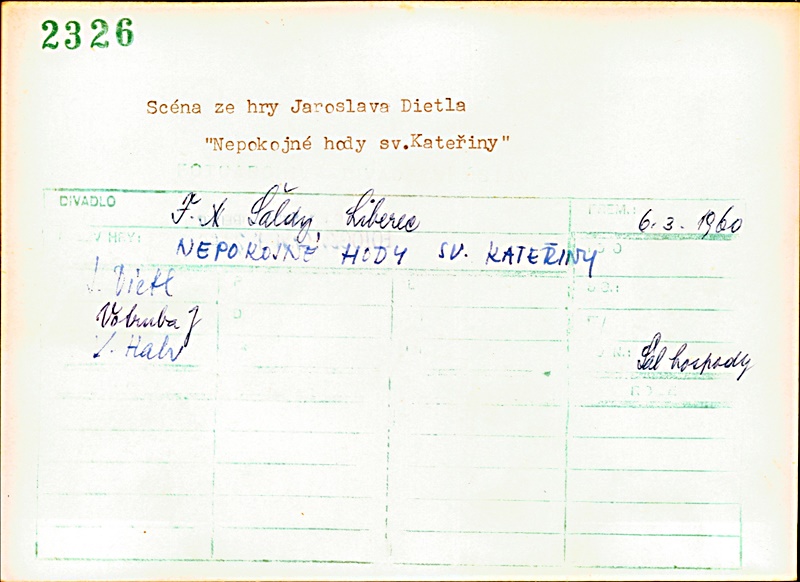 2326
Scéna ze hry Jaroslava Dietla
"Nepokojné hody sv.Kateřiny"
DIVADLO F. X Šaldy, Liberec PREM.: 6. 3. 1960
HRY: NEPOKOJNÉ HODY SV. KATEŘINY
J. Dietl
Votruba J
Sál hospody